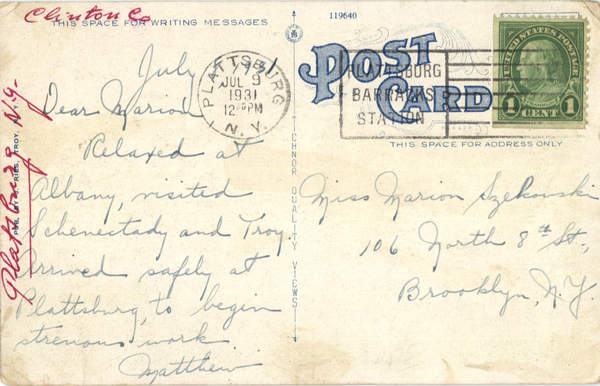 Clinton Co
THIS SPACE FOR WRITING MESSAGES
119640
POST
CARD
PLATTSBURG
JUL 9
1931
12 PM
N.Y.
PLATTSBURG
BARRACKS
STATION
UNITED STATES POSTAGE
1 CENT 1
THIS SPACE FOR ADDRESS ONLY
Plattsburg N.Y.
TICHNOR QUALITY VIEWS
July
Dear Marion
Relaxed at
Albany, visited
Schenectady and Troy.
Arrived safely at
Plattsburg, to begin
strenous work
Matthew
Miss Marion Szekovski
106 North 8th St.,
Brooklyn, N.Y.